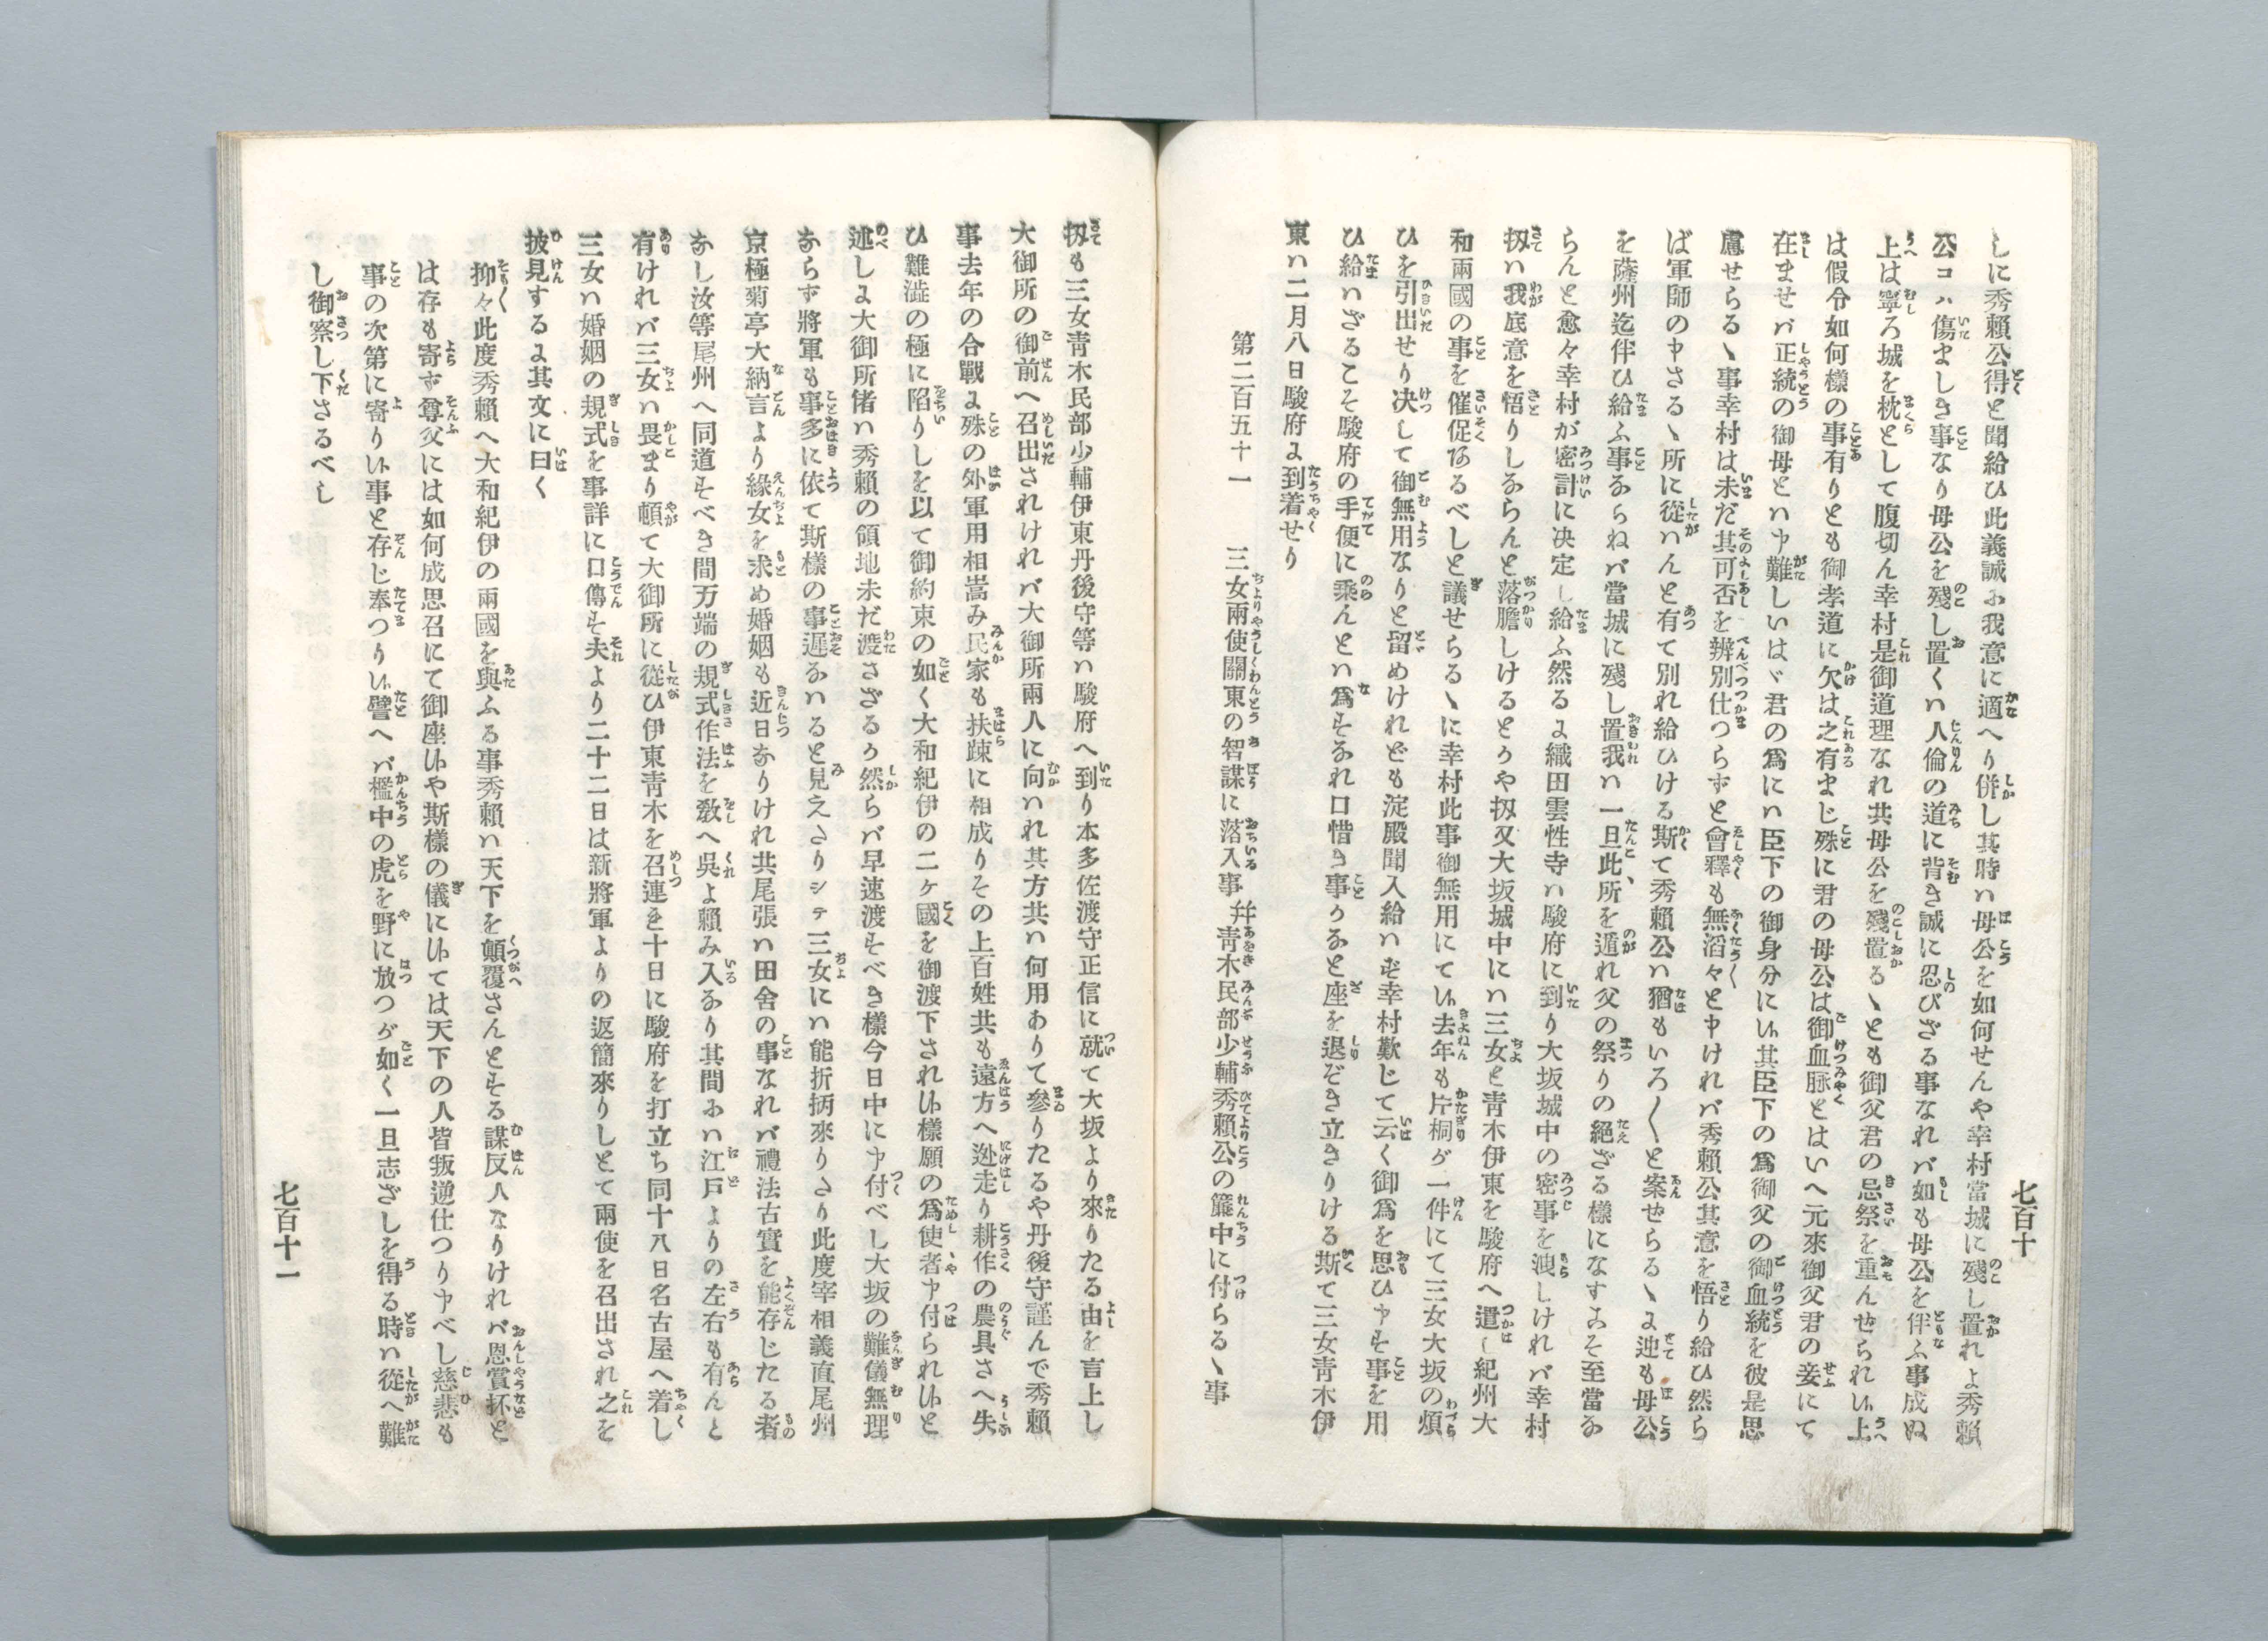 しに秀頼公得と聞給ひ此義誠に我意に適へり併し其時ハ母公を如何せんや幸村當城に殘し置れよ秀頼
公コハ傷ましき事なり母公を殘し置くハ人倫の道に背き誠に忍びざる事なれバ如も母公を伴ふ事成ぬ
上は寧ろ城を枕として腹切ん幸村是御道理なれ共母公を殘置るヽとも御父君の忌祭を重んせられ候上
は假令如何樣の事有りとも御孝道に欠は之有まじ殊に君の母公は御血脉とはいへ元來御父君の妾にて
在ませバ正統の御母とハ申難しいはヾ君の爲にハ臣下の御身分に候其臣下の爲御父の御血統を彼是思
慮せらるヽ事幸村は未だ其可否を辨別仕つらずと會釋も無滔々と申けれバ秀頼公其意を悟り給ひ然ら
ば軍師の申さるヽ所に從ハんと有て別れ給ひける斯て秀頼公ハ猶もいろ〳〵と案せらるヽに迚も母公
を薩州迄伴ひ給ふ事ならねバ當城に殘し置我ハ一旦此所を遁れ父の祭りの絶ざる樣になすこそ至當な
らんと愈々幸村が密計に决定し給ふ然るに織田雲性寺ハ駿府に到り大坂城中の密事を洩しけれバ幸村
扨ハ我底意を悟りしならんと落膽しけるとかや扨又大坂城中にハ三女と青木伊東を駿府へ遣し紀州大
和兩國の事を催促なるべしと議せらるヽに幸村此事御無用にて候去年も片桐が一件にて三女大坂の煩
ひを引出せり决して御無用なりと留めけれども淀殿聞入給ハず幸村歎じて云く御爲を思ひ申す事を用
ひ給ハざるこそ駿府の手便に乘んとハ爲すなれ口惜き事かなと座を退ぞき立さりける斯て三女青木伊
東ハ二月八日駿府に到着せり
第二百五十一　三女兩使關東の智謀に落入事并青木民部少輔秀頼公の簾中に付らるヽ事
七百十
扨も三女青木民部少輔伊東丹後守等ハ駿府へ到り本多佐渡守正信に就て大坂より來りたる由を言上し
大御所の御前へ召出されけれバ大御所兩人に向ハれ其方共ハ何用ありて參りたるや丹後守謹んで秀頼
事去年の合戰に殊の外軍用相嵩み民家も扶疎に相成りその上百姓共も遠方へ迯走り耕作の農具さへ失
ひ難澁の極に陷りしを以て御約束の如く大和紀伊の二ケ國を御渡下され候樣願の爲使者申付られ候と
述しに大御所偖ハ秀頼の領地未だ渡さざるか然らバ早速渡すべき樣今日中に申付べし大坂の難儀無理
ならず將軍も事多に依て斯樣の事遲なハると見えたりシテ三女にハ能折柄來りたり此度宰相義直尾州
京極菊亭大納言より緣女を求め婚姻も近日なりけれ共尾張ハ田舍の事なれバ禮法古實を能存じたる者
なし汝等尾州へ同道すべき間万端の規式作法を敎へ呉よ頼み入るなり其間にハ江戸よりの左右も有んと
有けれバ三女ハ畏まり頓て大御所に從ひ伊東青木を召連を十日に駿府を打立ち同十八日名古屋へ着し
三女ハ婚姻の規式を事詳に口傳す夫より二十二日は新將軍よりの返簡來りしとて兩使を召出され之を
披見するに其文に曰く
抑々此度秀頼へ大和紀伊の兩國を與ふる事秀頼ハ天下を顛覆さんとする謀反人なりけれバ恩賞抔と
は存も寄ず尊父には如何成思召にて御座候や斯樣の儀に候ては天下の人皆叛逆仕つり申べし慈悲も
事の次第に寄り候事と存じ奉つり候譬へバ檻中の虎を野に放つが如く一旦志ざしを得る時ハ從へ難
し御察し下さるべし
七百十一